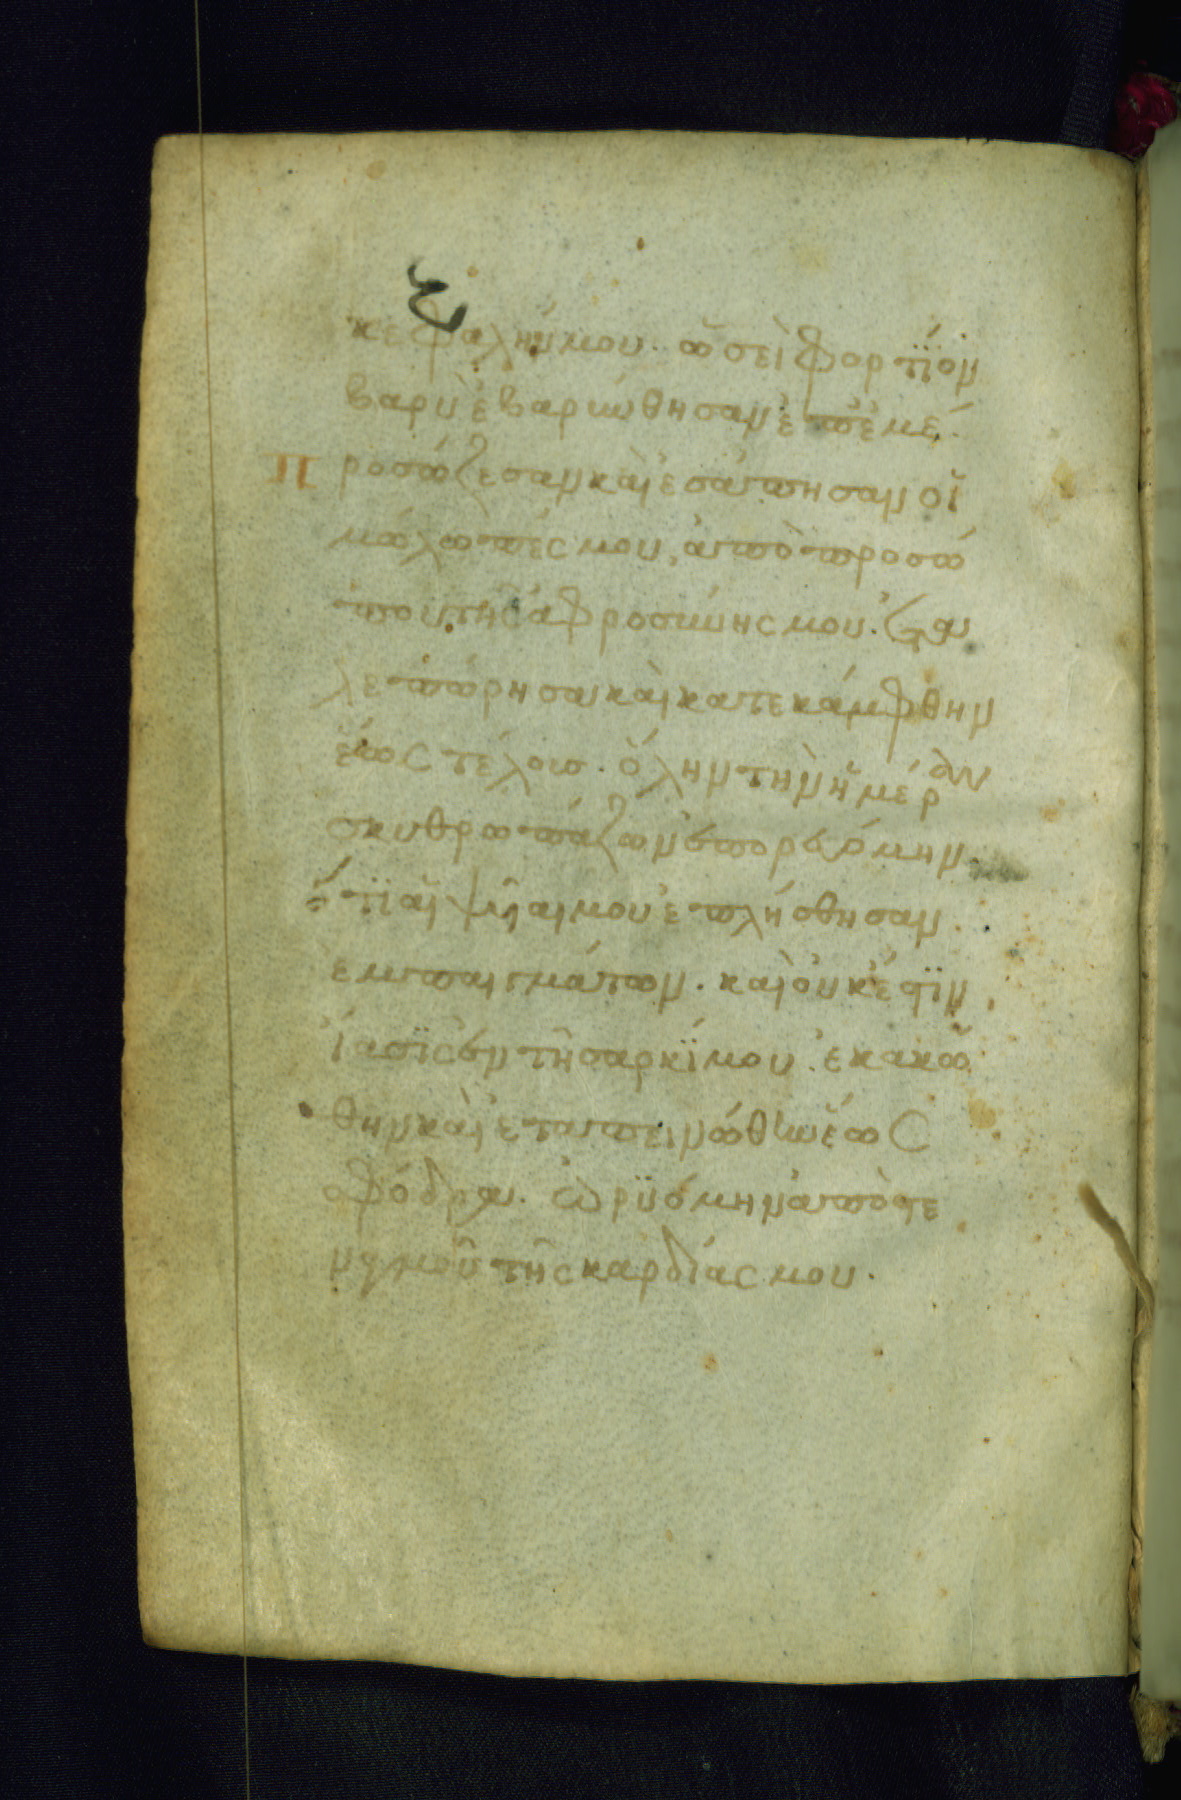 κεφαλήν μου. ὡσεὶ φορτίον
βαρὺ ἐβαρύνθησαν ἐπ' ἐμέ.
Προσώζεσαν καὶ ἐσάπησαν οἱ
μώλωπές μου, ἀπὸ προσώ
που τῆς ἀφροσύνης μου. ἐτα
λαιπώρησα καὶ κατεκάμφθην
ἕως τέλους. ὅλην τὴν ἡμέραν
σκυθρωπάζων ἐπορευόμην.
ὅτι ἡ ψυχή μου ἐπλήσθησαν
ἐμπαιγμάτων. καὶ οὐκ ἔστιν
ἴασις ἐν τῇ σαρκί μου. ἐκακώ
θην καὶ ἐταπεινώθην ἕως
σφόδρα. ὠρυόμην ἀπὸ στε
ναγμοῦ τῆς καρδίας μου.